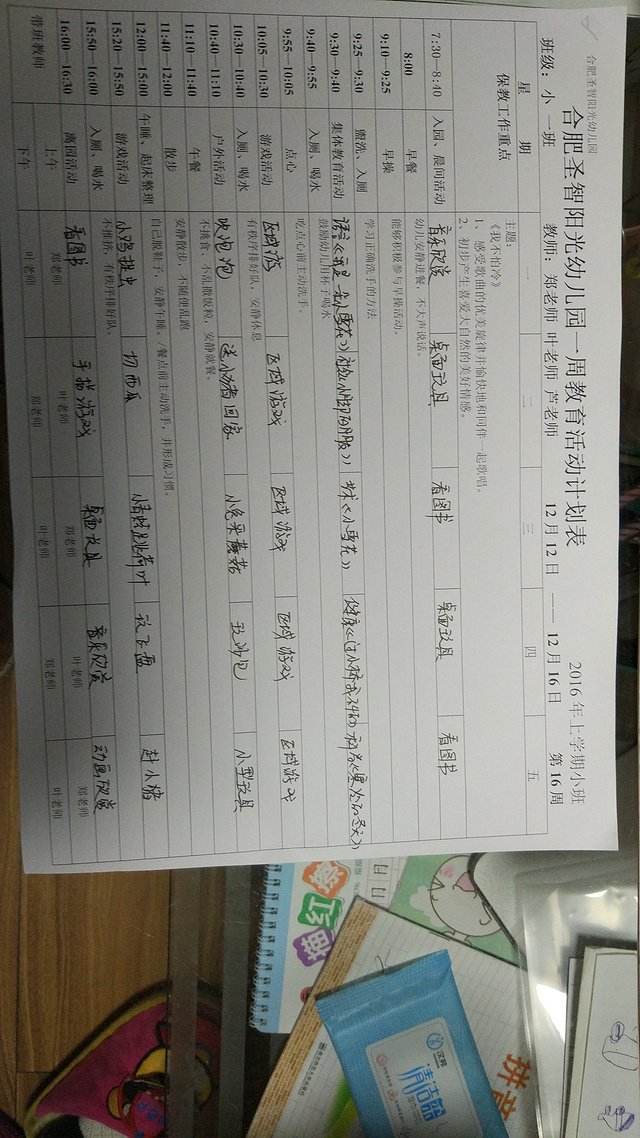 合肥圣智阳光幼儿园
合肥圣智阳光幼儿园一周教育活动计划表
2016 年上学期小班
班级：小 一班 教师：郑老师 叶老师 芦老师 12 月 12 日 —— 12 月 16 日 第 16 周
星 期 一 二 三 四 五
保教工作重点
主题：
《我不怕冷》
1、感受歌曲的优美旋律并愉快地和同伴一起歌唱。
2、初步产生喜爱大自然的美好情感。
7:30—8:40 入园、晨间活动 音乐欣赏 桌面玩具 看图书 桌面玩具 看图书
8:00 早餐 幼儿安静进餐，不大声说话。
9:10—9:25 早操 能够积极参与早操活动。
9:25—9:30 盥洗、入厕 学习正确洗手的方法
9:30—9:40 集体教育活动 语言 《小雪花》
9:40—9:55 入厕、喝水 鼓励幼儿用杯子喝水
9:55—10:05 点心 吃点心前主动洗手。
10:05—10:30 游戏活动 区域游 区域游戏 区域游戏 区域游戏 区域游戏
10:30—10:40 入厕、喝水 有秩序排好队，安静休息
10:40—11:10 户外活动 吹泡泡 送小动者回家 小兔采蘑菇 玩沙包 小型玩具
11:10—11:40 午餐 不挑食、不乱撒饭粒，安静就餐。
11:40—12:00 散步 安静散步，不随便乱跑
12:00—15:00 午睡、起床整理 自己脱鞋子，安静午睡。/餐点前主动洗手，并形成习惯。
15:20—15:50 游戏活动 小鸡捉虫 切西瓜 小青蛙跳荷叶 玩飞盘 赶小猪
15:50—16:00 入厕、喝水 不推挤，有秩序排好队。
16:00—16:30 离园活动 看图书 手指游戏 桌面玩具 音乐欣赏 动画欣赏
带班教师 上午 郑老师 叶老师 郑老师 叶老师 郑老师
下午 叶老师 郑老师 叶老师 郑老师 叶老师
描
工
汉邦
清洁器
拼音